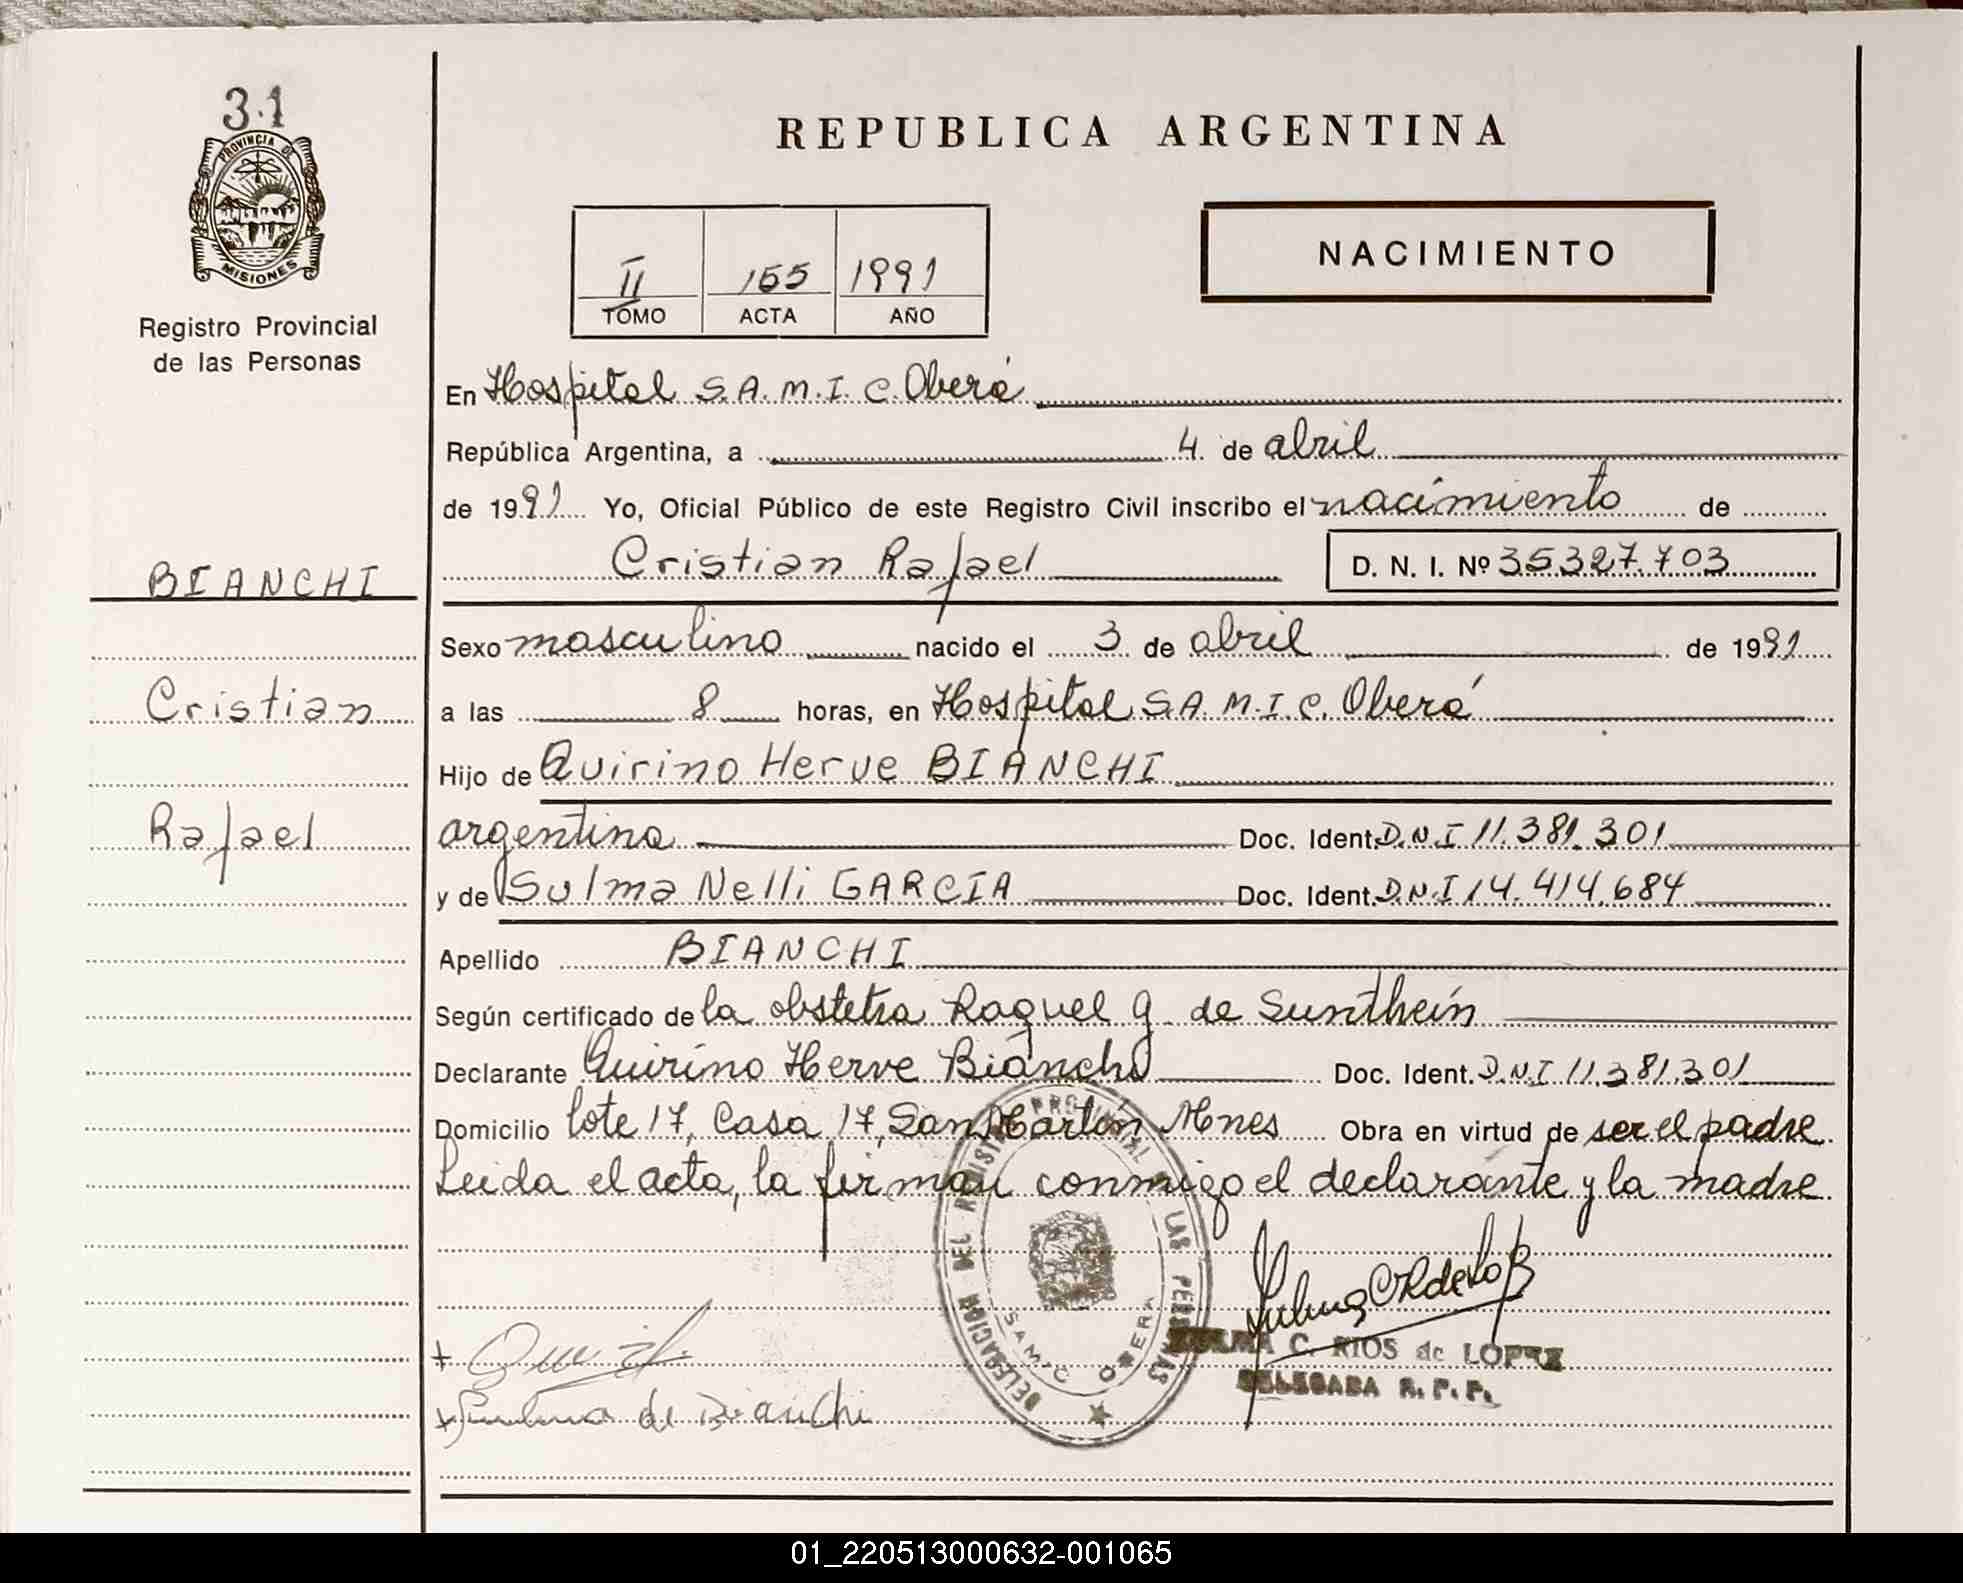 31
PROVINCIA DE
MISIONES
Registro Provincial
de las Personas
BIANCHI
Cristian
Rafael
REPUBLICA ARGENTINA
II 155 1991
TOMO ACTA AÑO
NACIMIENTO
En Hospital S.A.M.I.C. Oberá
República Argentina, a 4 de abril
de 1991 Yo, Oficial Público de este Registro Civil inscribo el nacimiento de
Cristian Rafael D. N. I. Nº 35327.703
Sexo masculino nacido el 3 de abril de 1991
a las 8 horas, en Hospital S.A.M.I.C. Oberá
Hijo de Quirino Herve BIANCHI
argentina Doc. Ident. D.N.I 11.381.301
y de Sulma Nelli GARCIA Doc. Ident. D.N.I 14.414.684
Apellido BIANCHI
Según certificado de la obstetra Raquel G. de Sunthein
Declarante Quirino Herve Bianchi Doc. Ident. D.N.I 11.381.301
Domicilio lote 17, Casa 17, San Martín Mnes Obra en virtud de ser el padre
Leida el acta, la firman conmigo el declarante y la madre
DELEGACION DEL REGISTRO PROVINCIAL DE LAS PERSONAS
SAMIC OBERA
C. RIOS de LOPEZ
DELEGADA R. P. P.
de Bianchi
01_220513000632-001065